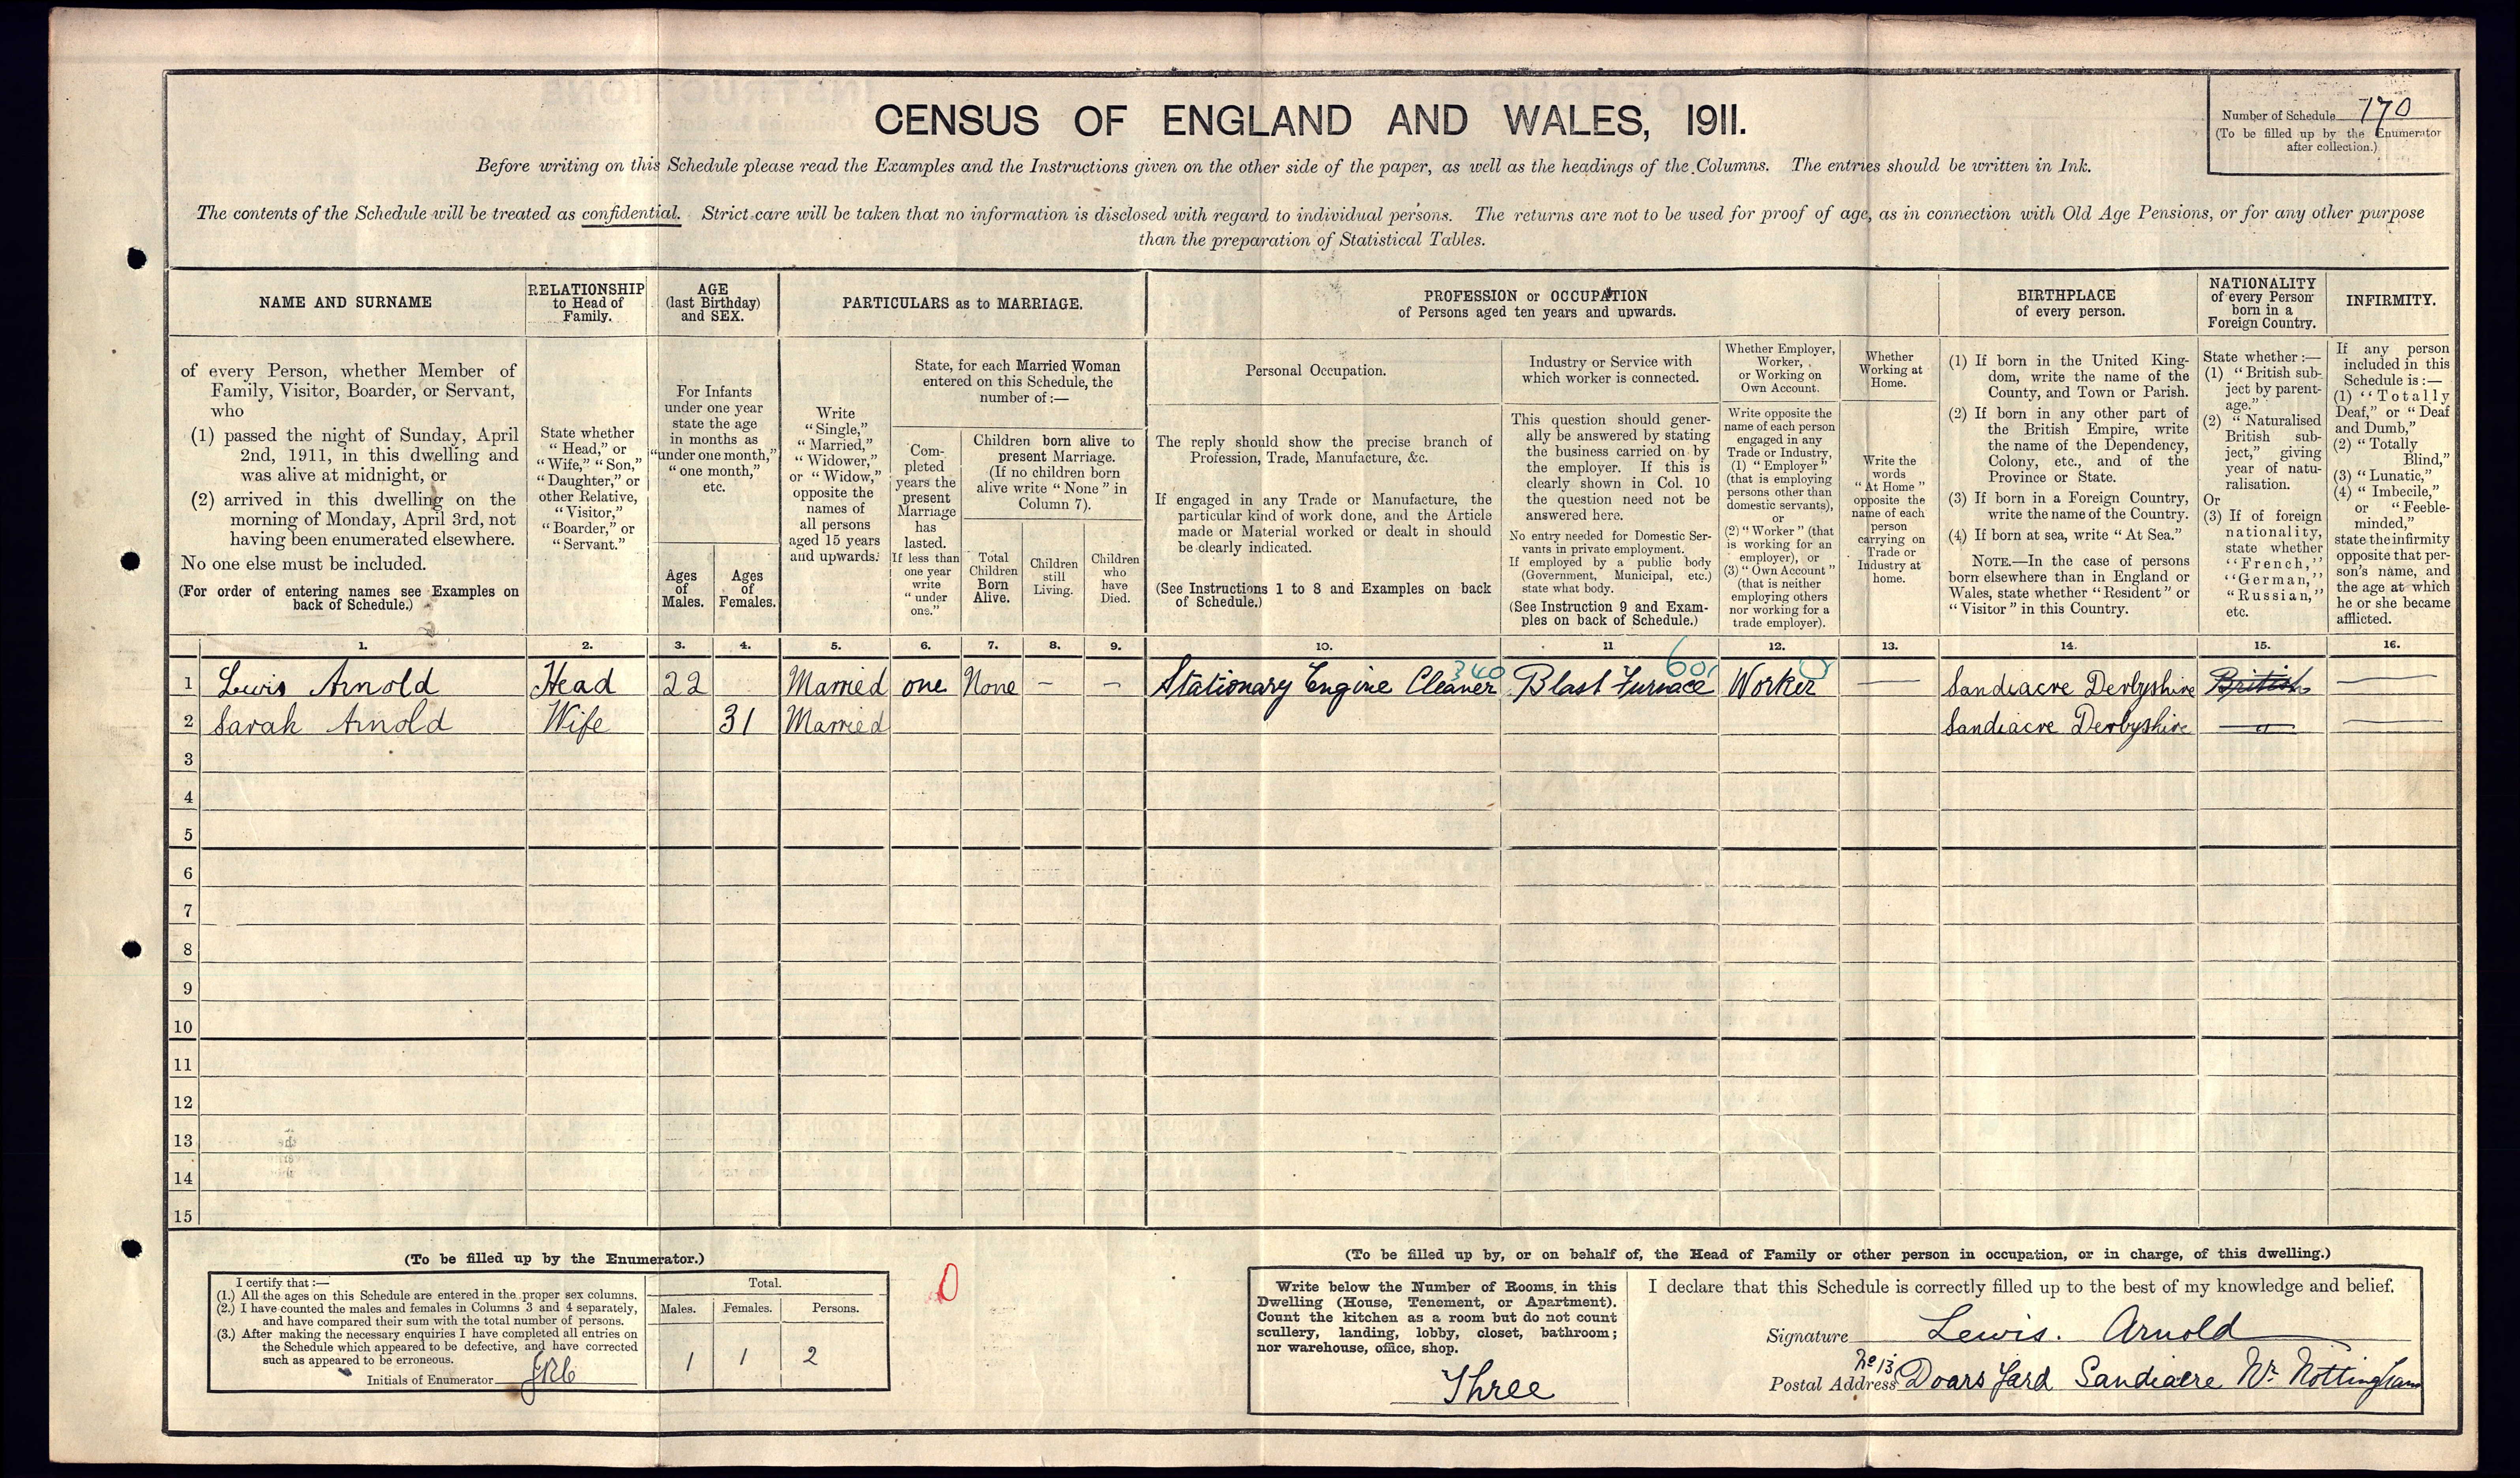 CENSUS OF ENGLAND AND WALES, 1911.
Number of Schedule 170
(To be filled up by the Enumerator
after collection.)
Before writing on this Schedule please read the Examples and the Instructions given on the other side of the paper, as well as the headings of the Columns. The entries should be written in Ink.
The contents of the Schedule will be treated as confidential. Strict care will be taken that no information is disclosed with regard to individual persons. The returns are not to be used for proof of age, as in connection with Old Age Pensions, or for any other purpose
than the preparation of Statistical Tables.
NAME AND SURNAME
of every Person, whether Member of
Family, Visitor, Boarder, or Servant,
who
(1) passed the night of Sunday, April
2nd, 1911, in this dwelling and
was alive at midnight, or
(2) arrived in this dwelling on the
morning of Monday, April 3rd, not
having been enumerated elsewhere.
No one else must be included.
(For order of entering names see Examples on
back of Schedule.)
RELATIONSHIP
to Head of
Family.
State whether
"Head," or
"Wife," "Son,"
"Daughter," or
other Relative,
"Visitor,"
"Boarder," or
"Servant."
AGE
(last Birthday)
and SEX.
For Infants
under one year
state the age
in months as
"under one month,"
"one month,"
etc.
Ages
of
Males.
Ages
of
Females.
PARTICULARS as to MARRIAGE.
Write
"Single,"
"Married,"
"Widower,"
or "Widow,"
opposite the
names of
all persons
aged 15 years
and upwards.
State, for each Married Woman
entered on this Schedule, the
number of:—
Com-
pleted
years the
present
Marriage
has
lasted.
If less than
one year
write
"under
one."
Children born alive to
present Marriage.
(If no children born
alive write "None" in
Column 7).
Total
Children
Born
Alive.
Children
still
Living.
Children
who
have
Died.
PROFESSION or OCCUPATION
of Persons aged ten years and upwards.
Personal Occupation.
The reply should show the precise branch of
Profession, Trade, Manufacture, &c.
If engaged in any Trade or Manufacture, the
particular kind of work done, and the Article
made or Material worked or dealt in should
be clearly indicated.
(See Instructions 1 to 8 and Examples on back
of Schedule.)
Industry or Service with
which worker is connected.
This question should gener-
ally be answered by stating
the business carried on by
the employer. If this is
clearly shown in Col. 10
the question need not be
answered here.
No entry needed for Domestic Ser-
vants in private employment.
If employed by a public body
(Government, Municipal, etc.)
state what body.
(See Instruction 9 and Exam-
ples on back of Schedule.)
Whether Employer,
Worker,
or Working on
Own Account.
Write opposite the
name of each person
engaged in any
Trade or Industry,
(1) "Employer"
(that is employing
persons other than
domestic servants),
or
(2) "Worker" (that
is working for an
employer), or
(3) "Own Account"
(that is neither
employing others
nor working for a
trade employer).
Whether
Working at
Home.
Write the
words
"At Home"
opposite the
name of each
person
carrying on
Trade or
Industry at
home.
BIRTHPLACE
of every person.
(1) If born in the United King-
dom, write the name of the
County, and Town or Parish.
(2) If born in any other part of
the British Empire, write
the name of the Dependency,
Colony, etc., and of the
Province or State.
(3) If born in a Foreign Country,
write the name of the Country.
(4) If born at sea, write "At Sea."
NOTE.—In the case of persons
born elsewhere than in England or
Wales, state whether "Resident" or
"Visitor" in this Country.
NATIONALITY
of every Person
born in a
Foreign Country.
State whether:—
(1) "British sub-
ject by parent-
age."
(2) "Naturalised
British sub-
ject," giving
year of natu-
ralisation.
Or
(3) If of foreign
nationality,
state whether
"French,"
"German,"
"Russian,"
etc.
INFIRMITY.
If any person
included in this
Schedule is:—
(1) "Totally
Deaf," or "Deaf
and Dumb,"
(2) "Totally
Blind,"
(3) "Lunatic,"
(4) "Imbecile,"
or "Feeble-
minded,"
state the infirmity
opposite that per-
son's name, and
the age at which
he or she became
afflicted.
1. 2. 3. 4. 5. 6. 7. 8. 9. 10. 11 12. 13. 14. 15. 16.
1 Lewis Arnold Head 22 Married one None – – Stationary Engine Cleaner 340 Blast Furnace Worker — Sandiacre Derbyshire British —
2 Sarah Arnold Wife 31 Married Sandiacre Derbyshire — " — —
3
4
5
6
7
8
9
10
11
12
13
14
15
(To be filled up by the Enumerator.)
I certify that:—
(1.) All the ages on this Schedule are entered in the proper sex columns.
(2.) I have counted the males and females in Columns 3 and 4 separately,
and have compared their sum with the total number of persons.
(3.) After making the necessary enquiries I have completed all entries on
the Schedule which appeared to be defective, and have corrected
such as appeared to be erroneous.
Initials of Enumerator
Total.
Males. Females. Persons.
1 1 2
0
(To be filled up by, or on behalf of, the Head of Family or other person in occupation, or in charge, of this dwelling.)
Write below the Number of Rooms in this
Dwelling (House, Tenement, or Apartment).
Count the kitchen as a room but do not count
scullery, landing, lobby, closet, bathroom;
nor warehouse, office, shop.
Three
I declare that this Schedule is correctly filled up to the best of my knowledge and belief.
Signature Lewis. Arnold
Postal Address No 13 Doars Yard Sandiacre Nr Nottingham